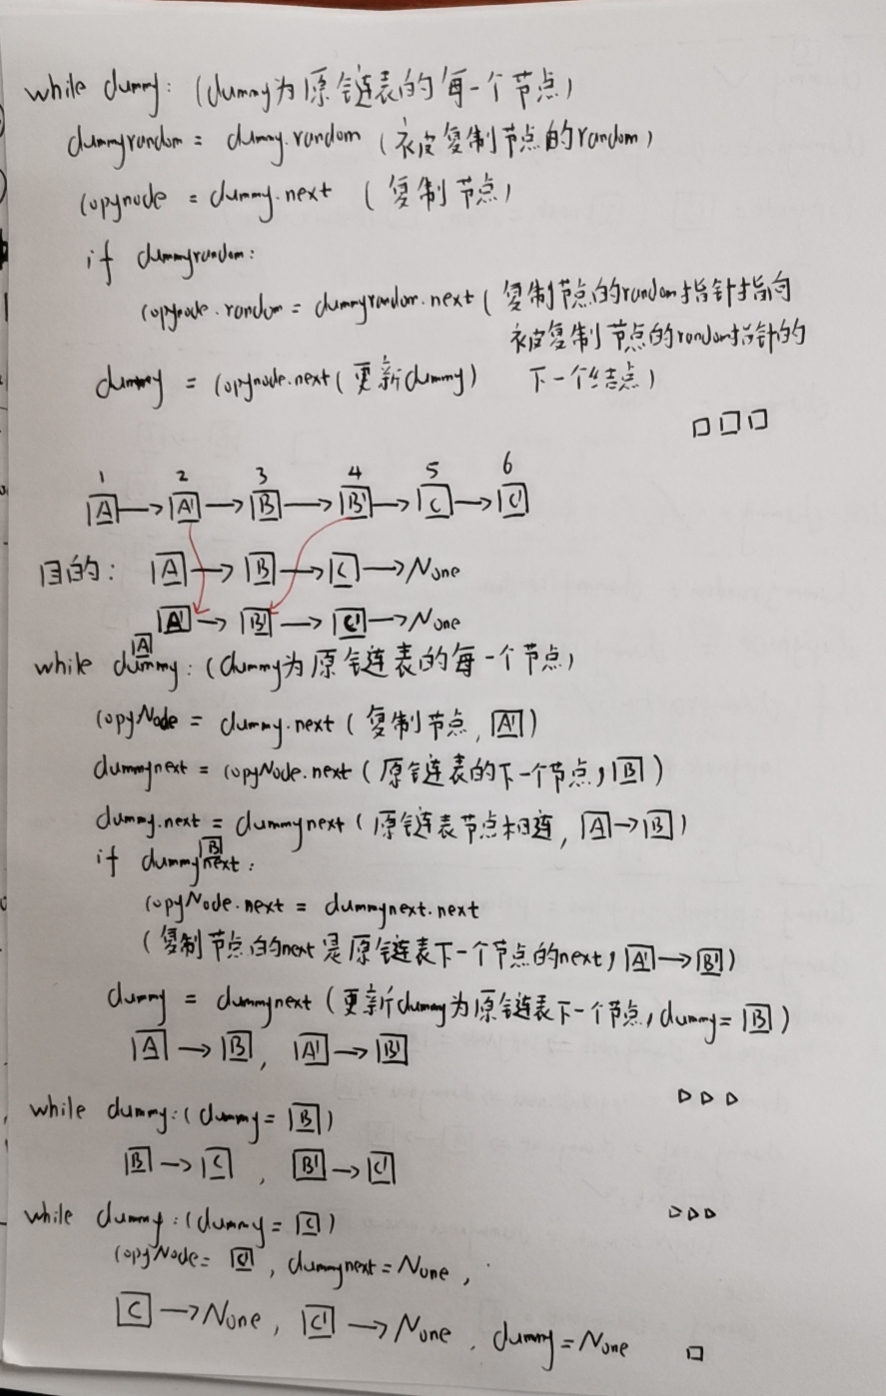 while dummy: (dummy为原链表的每一个节点)
dummyrandom = dummy.random (被复制节点的random)
copynode = dummy.next (复制节点)
if dummyrandom:
copynode.random = dummyrandom.next (复制节点的random指针指向
被复制节点的random指针的
dummy = copynode.next (更新dummy) 下一个结点)
1 2 3 4 5 6
A → A' → B → B' → C → C'
目的: A → B → C → None
A' → B' → C' → None
A
while dummy: (dummy为原链表的每一个节点)
copyNode = dummy.next (复制节点, A')
dummynext = copyNode.next (原链表的下一个节点, B)
dummy.next = dummynext (原链表节点相连, A → B)
B
if dummynext:
copyNode.next = dummynext.next
(复制节点的next是原链表下一个节点的next, A' → B')
dummy = dummynext (更新dummy为原链表下一个节点, dummy = B)
A → B, A' → B'
while dummy: (dummy = B)
B → C, B' → C'
while dummy: (dummy = C)
copyNode = C', dummynext = None,
C → None, C' → None, dummy = None